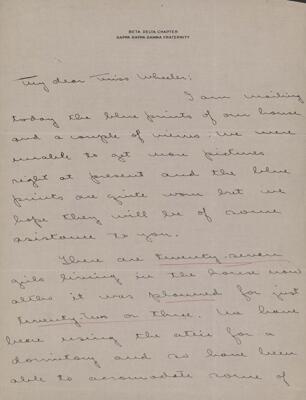 BETA DELTA CHAPTER
KAPPA KAPPA GAMMA FRATERNITY
My dear Miss Wheeler:
I am mailing
today the blue prints of our house
and a couple of views. We were
unable to get more pictures
right at present and the blue
prints are quite worn but we
hope they will be of some
asistance to you.
There are twenty-seven
girls living in the house now
altho it was planned for just
twenty-two or three. We have
been using the attic for a
dormitory and so have been
able to acomodate some of